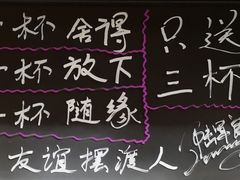 一杯舍得
一杯放下
一杯随缘
友谊摆渡人
只送
三杯